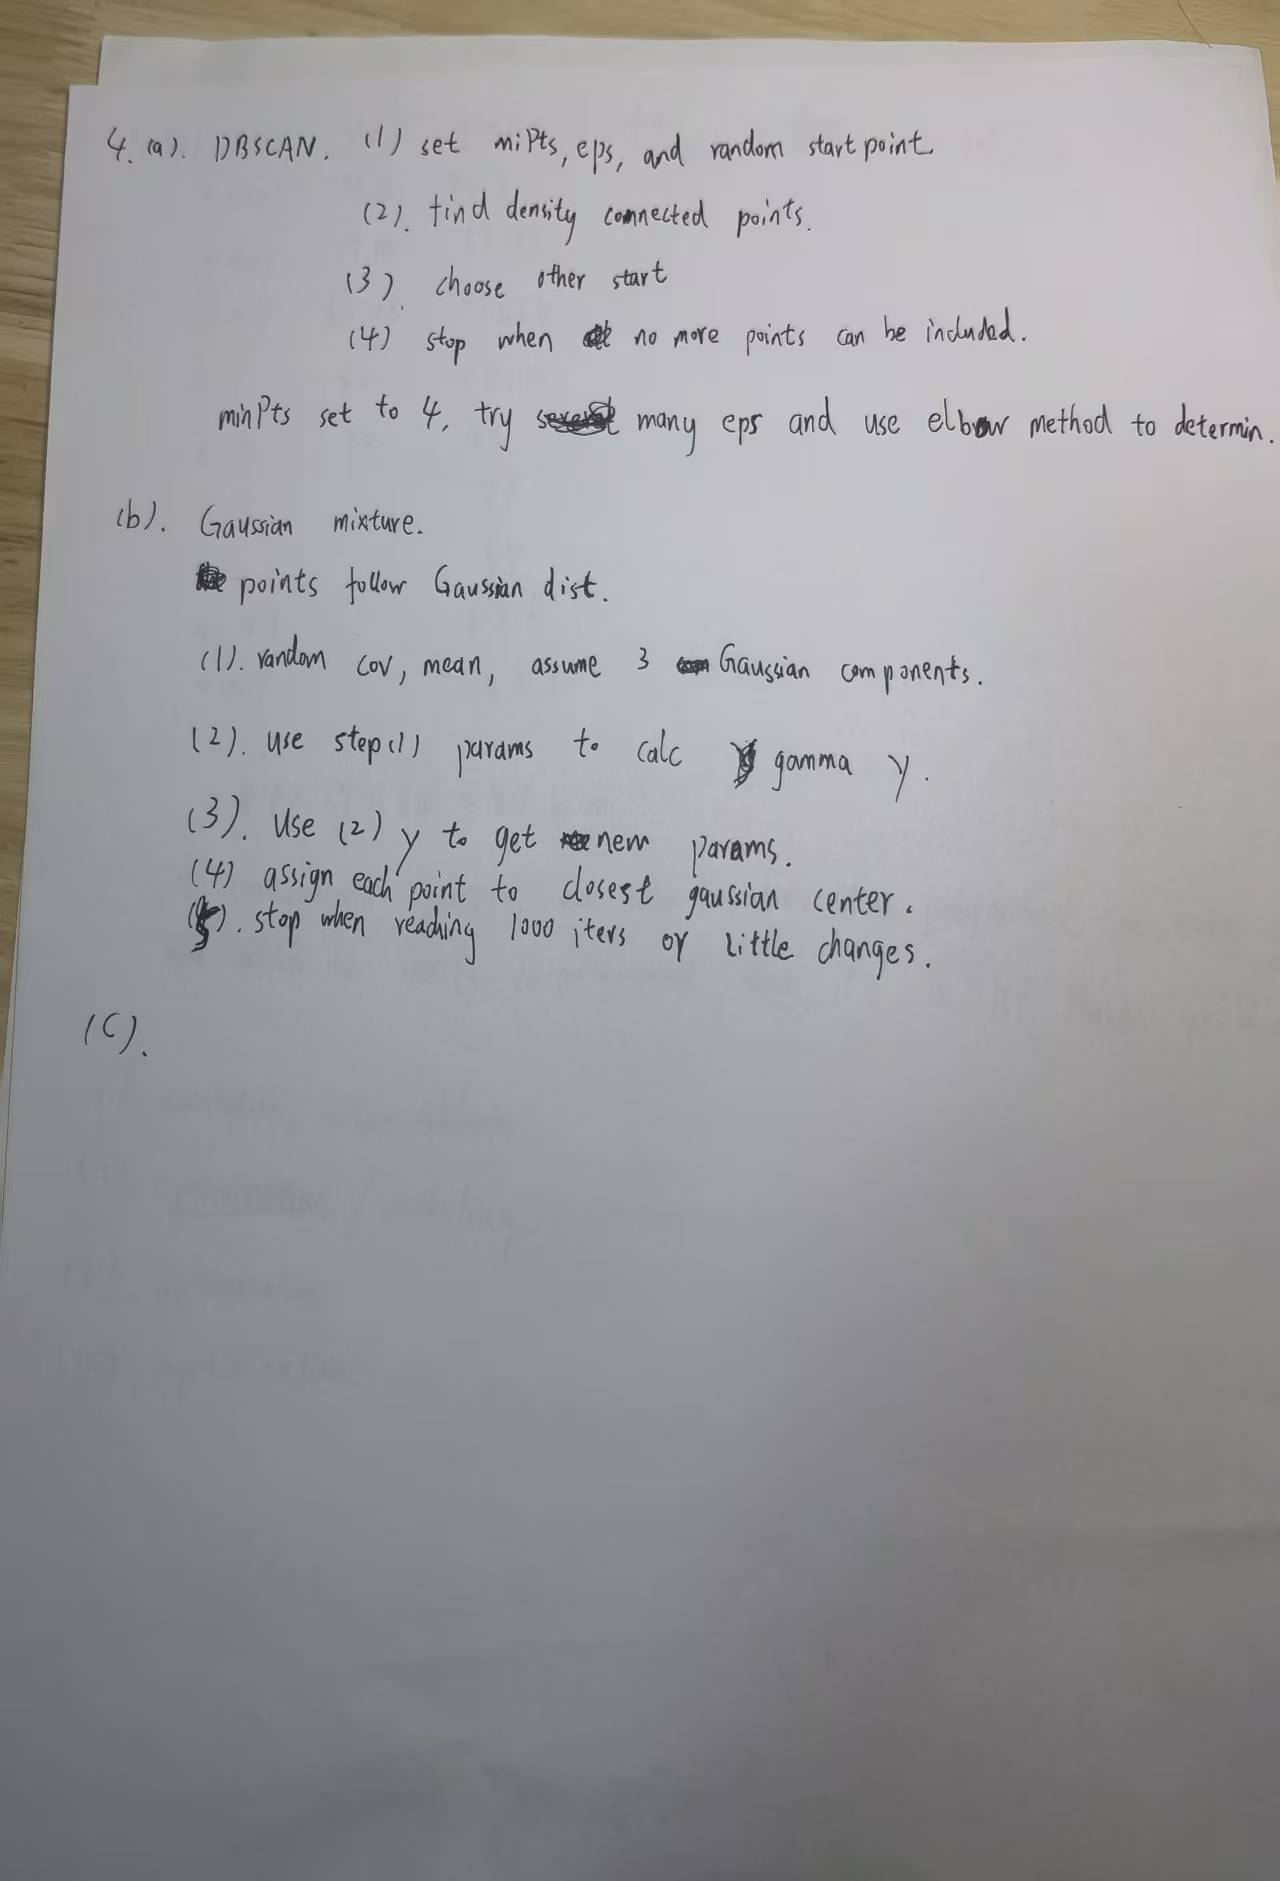 4. (a). DBSCAN. (1) set miPts, eps, and random start point.
(2). find density connected points.
(3). choose other start
(4) stop when no more points can be included.
minPts set to 4, try many eps and use elbow method to determin.
(b). Gaussian mixture.
points follow Gaussian dist.
(1). random cov, mean, assume 3 Gaussian components.
(2). use step(1) params to calc gamma γ.
(3). use (2) γ to get new params.
(4) assign each point to closest gaussian center.
(5). stop when reaching 1000 iters or little changes.
(C).